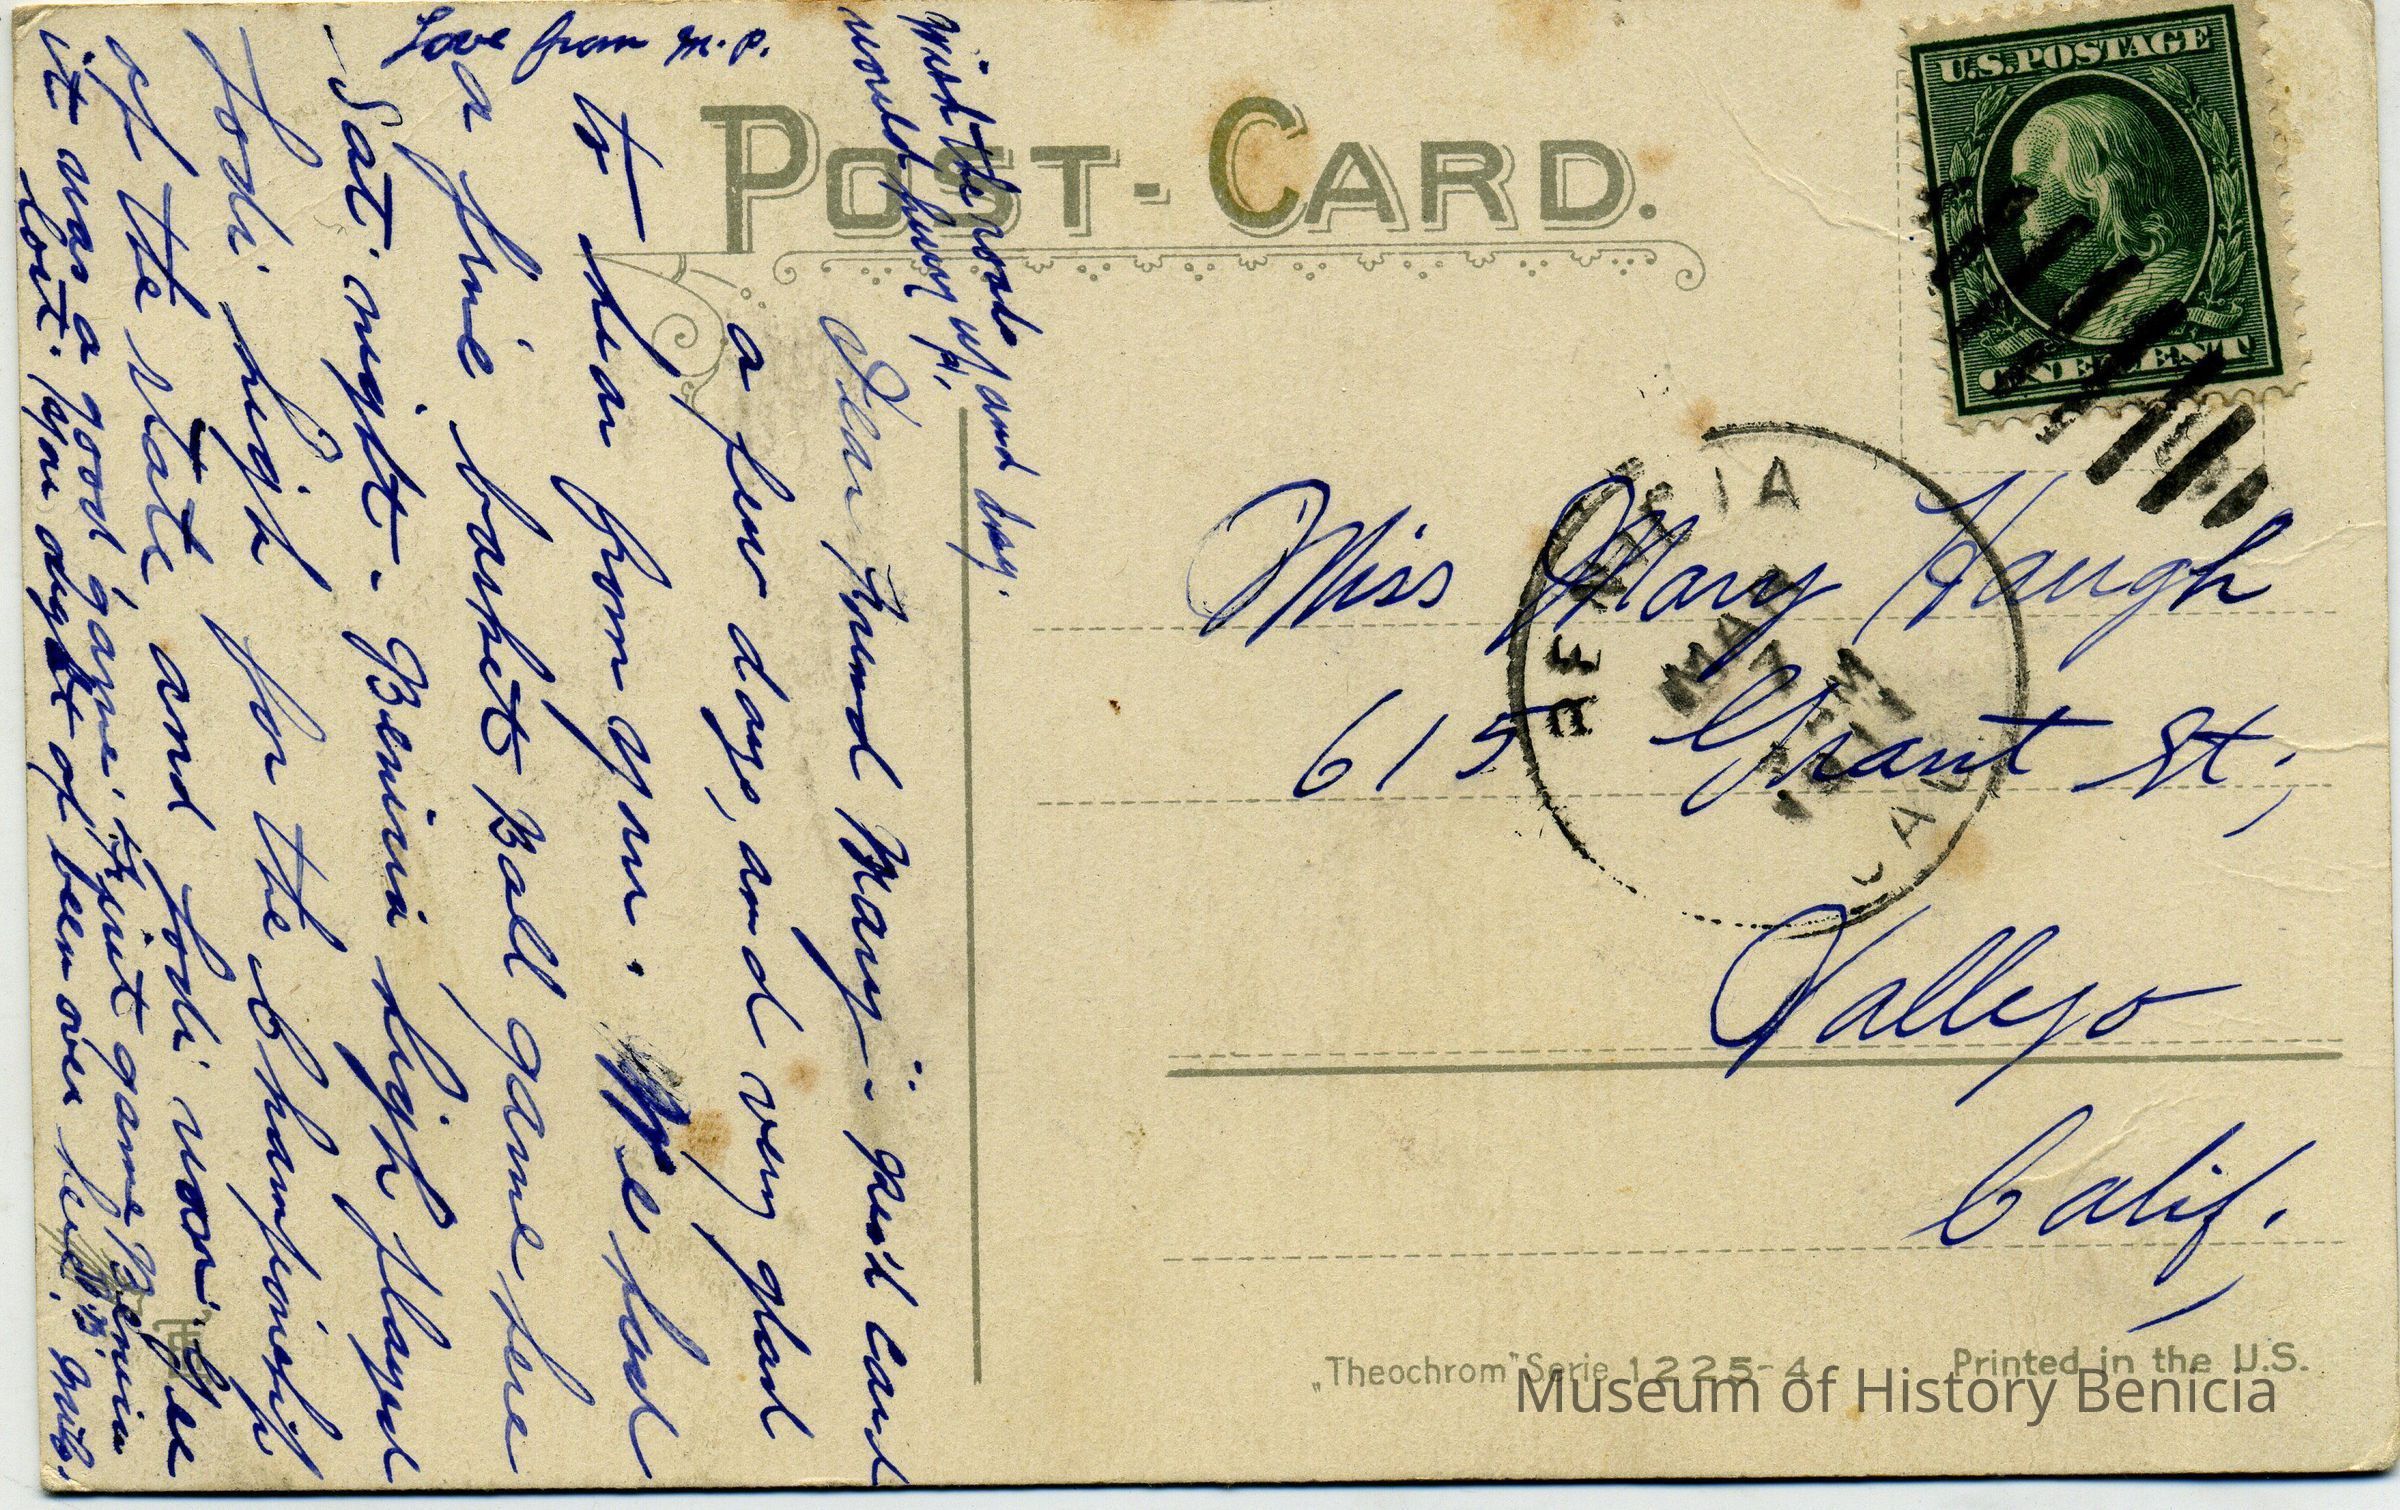 POST-CARD.
U.S. POSTAGE
ONE CENT
BENICIA
MAR
7
CAL
Miss Mary Haugh
615 Grant St,
Vallejo
Calif,
Dear Friend Mary - Rec'd Card
a few days, and very glad
to hear from you. We had
a fine basket Ball game here
Sat night - Benicia High played
Lodi High for the Championship
of the state and Lodi won
it was a good game first game Benicia
lost. You ought of been over here
Wish the roads
would hurry up and dry.
Love from M.P.
„Theochrom" Serie 1225-4
Printed in the U.S.
Museum of History Benicia